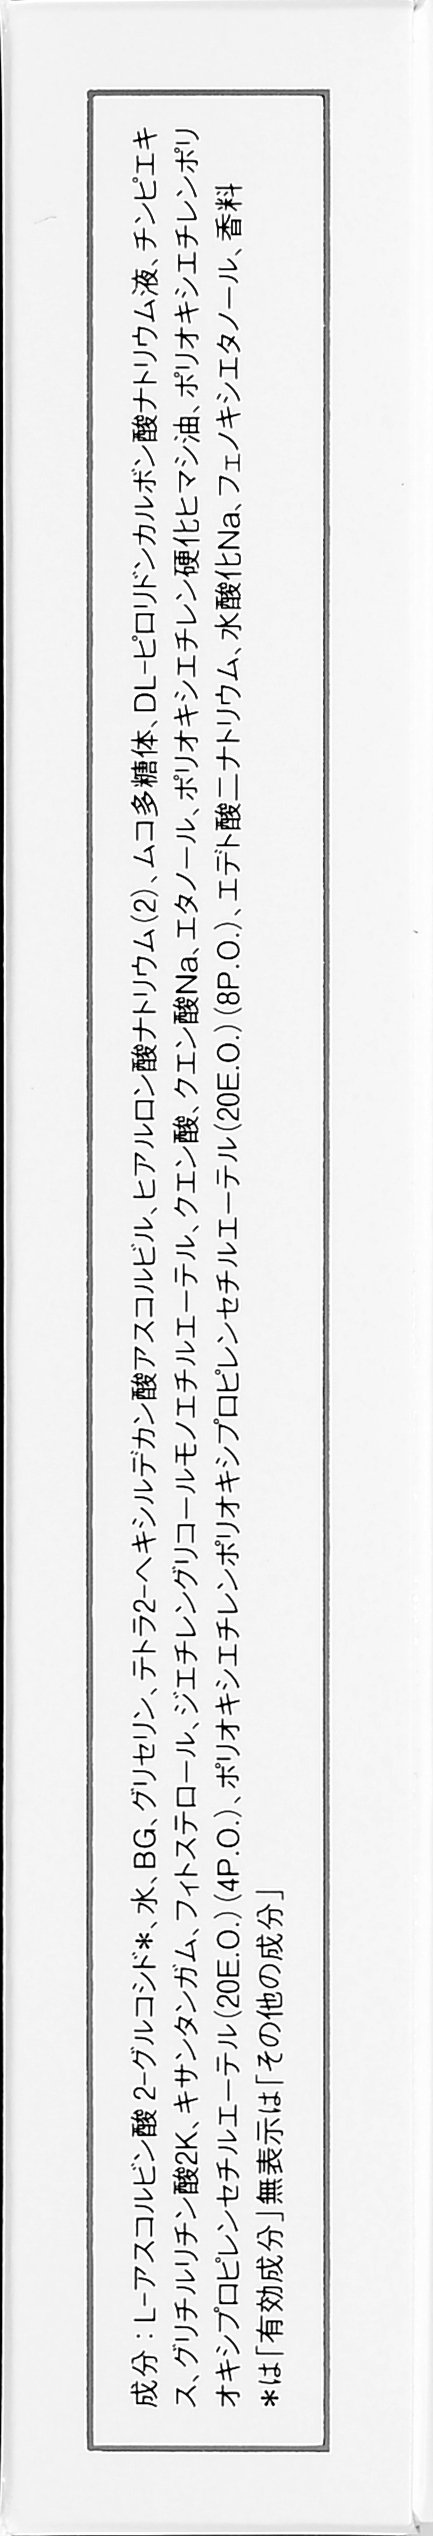 成分：L-アスコルビン酸 2-グルコシド＊、水、BG、グリセリン、テトラ2-ヘキシルデカン酸アスコルビル、ヒアルロン酸ナトリウム(2)、ムコ多糖体、DL-ピロリドンカルボン酸ナトリウム液、チンピエキ
ス、グリチルリチン酸2K、キサンタンガム、フィトステロール、ジエチレングリコールモノエチルエーテル、クエン酸、クエン酸Na、エタノール、ポリオキシエチレン硬化ヒマシ油、ポリオキシエチレンポリ
オキシプロピレンセチルエーテル(20E.O.)(4P.O.)、ポリオキシエチレンポリオキシプロピレンセチルエーテル(20E.O.)(8P.O.)、エデト酸二ナトリウム、水酸化Na、フェノキシエタノール、香料
＊は「有効成分」無表示は「その他の成分」